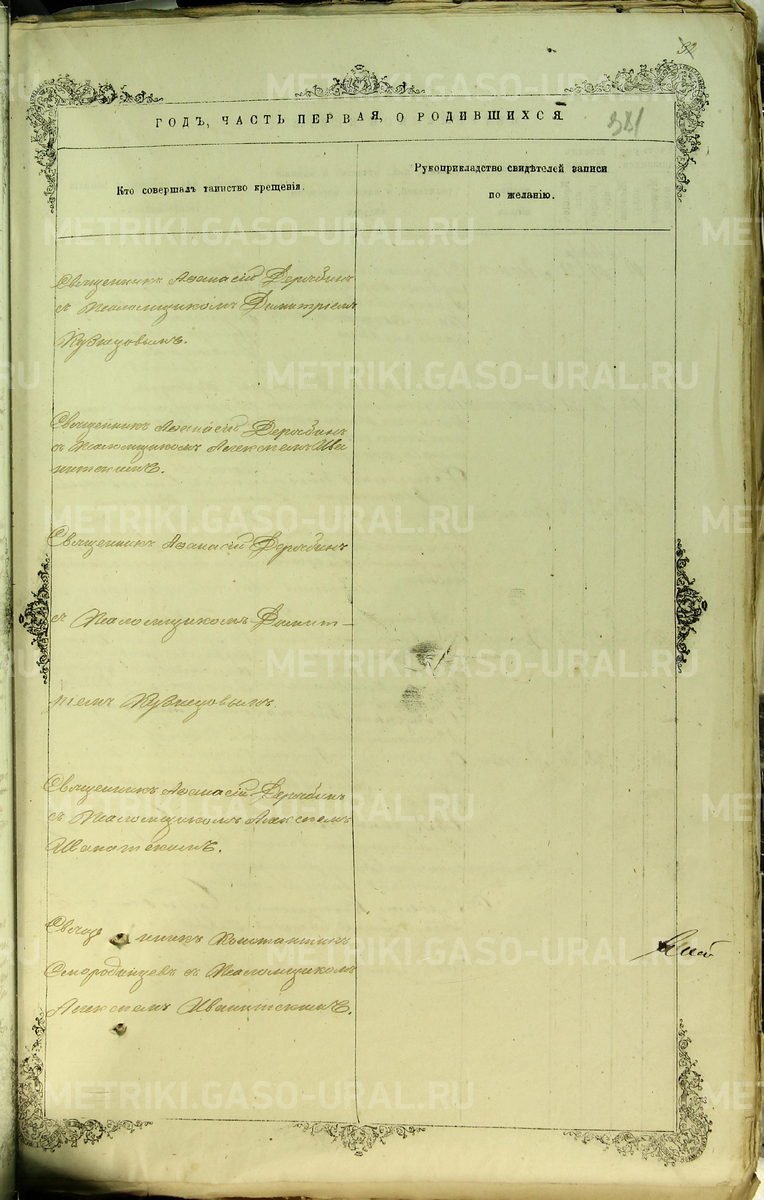 ГОДЪ, ЧАСТЬ ПЕРВАЯ, О РОДИВШИХСЯ
381
Кто совершалъ таинство крещенія.
Рукоприкладство свидѣтелей записи
по желанію.
Священникъ Аѳанасій Дерябинъ
съ Псаломщикомъ Димитріемъ
Кузнецовымъ.
Священникъ Аѳанасій Дерябинъ
съ Псаломщикомъ Алексѣемъ Ива
нитскимъ.
Священникъ Аѳанасій Дерябинъ
съ Псаломщикомъ Димит-
ріемъ Кузнецовымъ
Священникъ Аѳанасій Дерябинъ
съ Псаломщикомъ Алексѣемъ
Иванитскимъ.
Священникъ Константинъ
Смородинцевъ съ Псаломщикомъ
Алексѣемъ Иванитскимъ.
METRIKI.GASO-URAL.RU